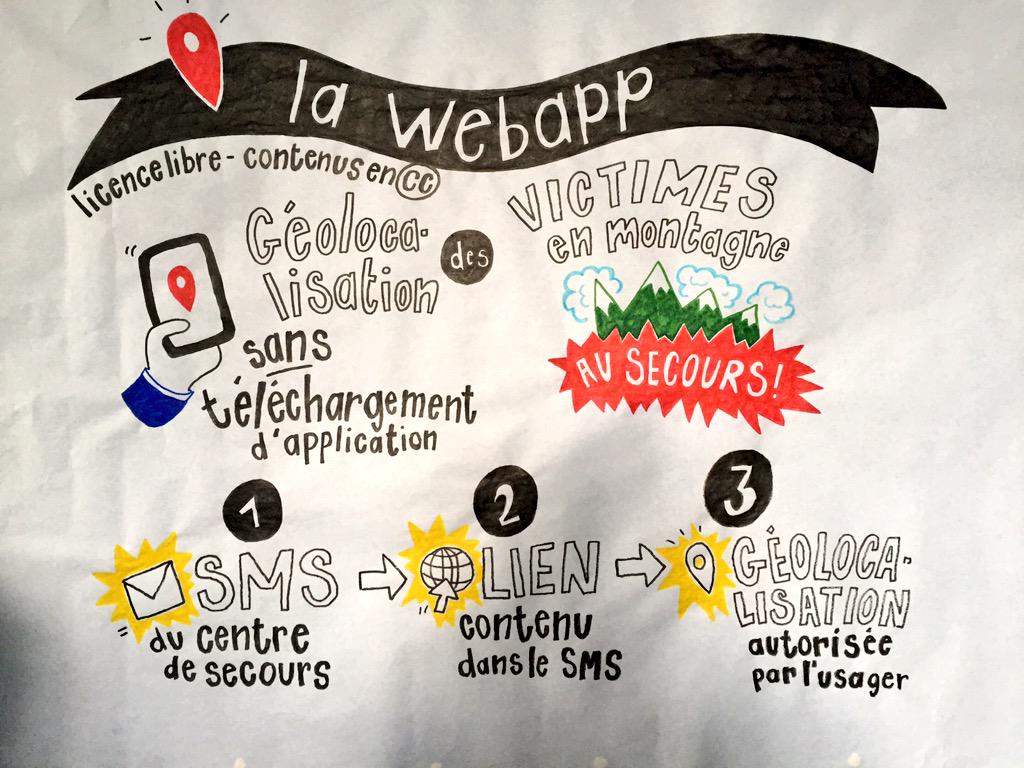 la webapp
licence libre - contenus en CC
Géoloca-
lisation des
VICTIMES
en montagne
AU SECOURS!
sans
téléchargement
d'application
1
SMS
du centre
de secours
2
LIEN
contenu
dans le SMS
3
GÉOLOCA-
LISATION
autorisée
par l'usager